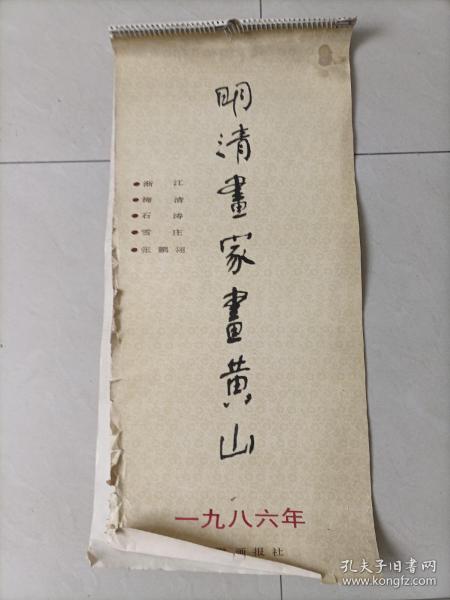 明清畫家畫黄山
●渐江
●梅清
●石涛
●雪庄
●张鹏翊
一九八六年
画报社
孔夫子旧书网
www.kongfz.com